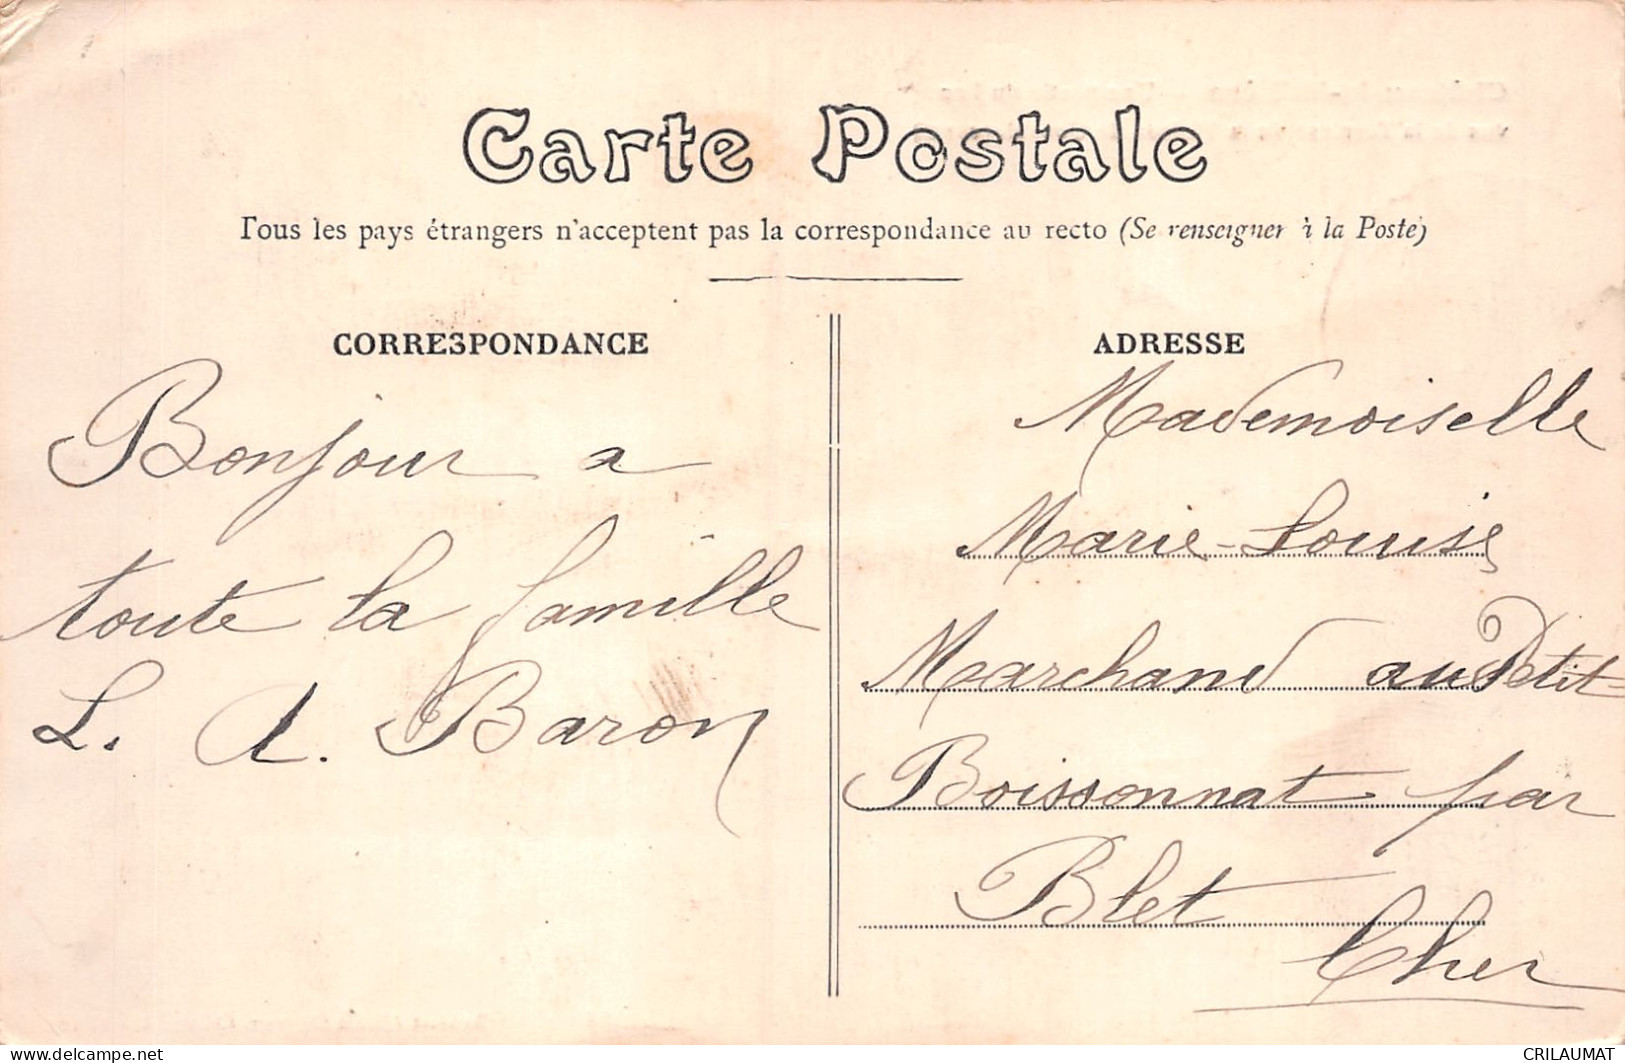 Carte Postale
Tous les pays étrangers n'acceptent pas la correspondance au recto (Se renseigner à la Poste)
CORRESPONDANCE
Bonjour a
toute la famille
L. A. Baron
ADRESSE
Mademoiselle
Marie-Louise
Marchand au Petit-
Boissonnat par
Blet
Cher
delcampe.net
CRILAUMAT